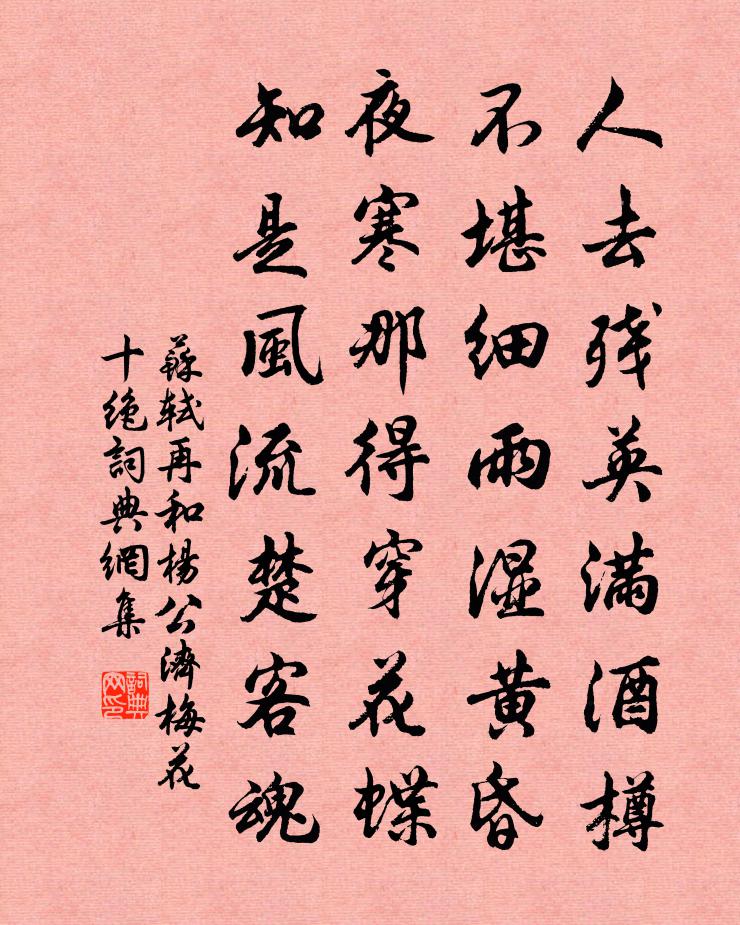 人去残英满酒樽
不堪细雨湿黄昏
夜寒那得穿花蝶
知是風流楚客魂
蘇轼再和楊公濟梅花
十绝詞典網集
詞典网印